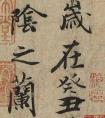 歲在癸丑
陰之蘭